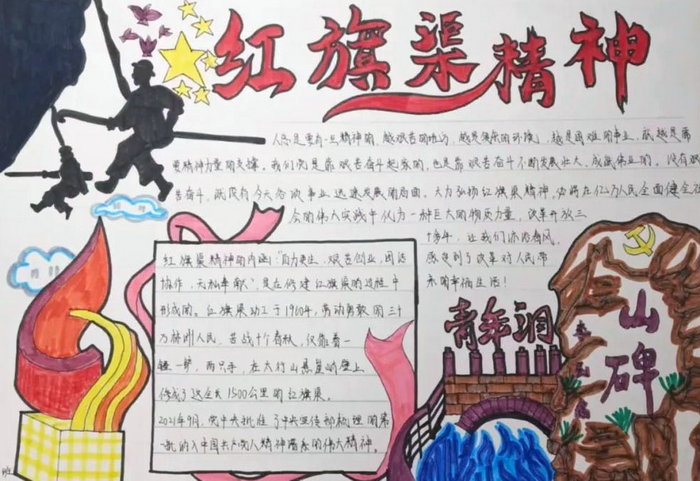 红旗渠精神
人总是要有一点精神的，越艰苦的地方，越是俱乐的环境，越是困难的事业，就越是需
要精神力量的支撑。我们党是靠艰苦奋斗起家的，也是靠艰苦奋斗不断发展壮大、成就伟业的，没有艰
苦奋斗，就没有今天各项事业迅速发展的局面。大力弘扬红旗渠精神，必将在亿万人民全面建
会的伟大实践中化为一种巨大的物质力量，改革开放三
十多年，让我们沐浴春风，
感受到了改革对人民带
来的幸福生活！
红旗渠精神的内涵："自力更生，艰苦创业，团结
协作，无私奉献"，是在修建红旗渠的过程中
形成的。红旗渠动工于1960年，勤劳勇敢的三十
万林州人民，苦战十个春秋，仅靠着一
锤一铲，两只手，在太行山悬崖峭壁上
修成了这全长1500公里的红旗渠。
2021年9月，党中央批准了中央宣传部梳理的第
一批纳入中国共产党人精神谱系的伟大精神。
青年洞
山碑
班